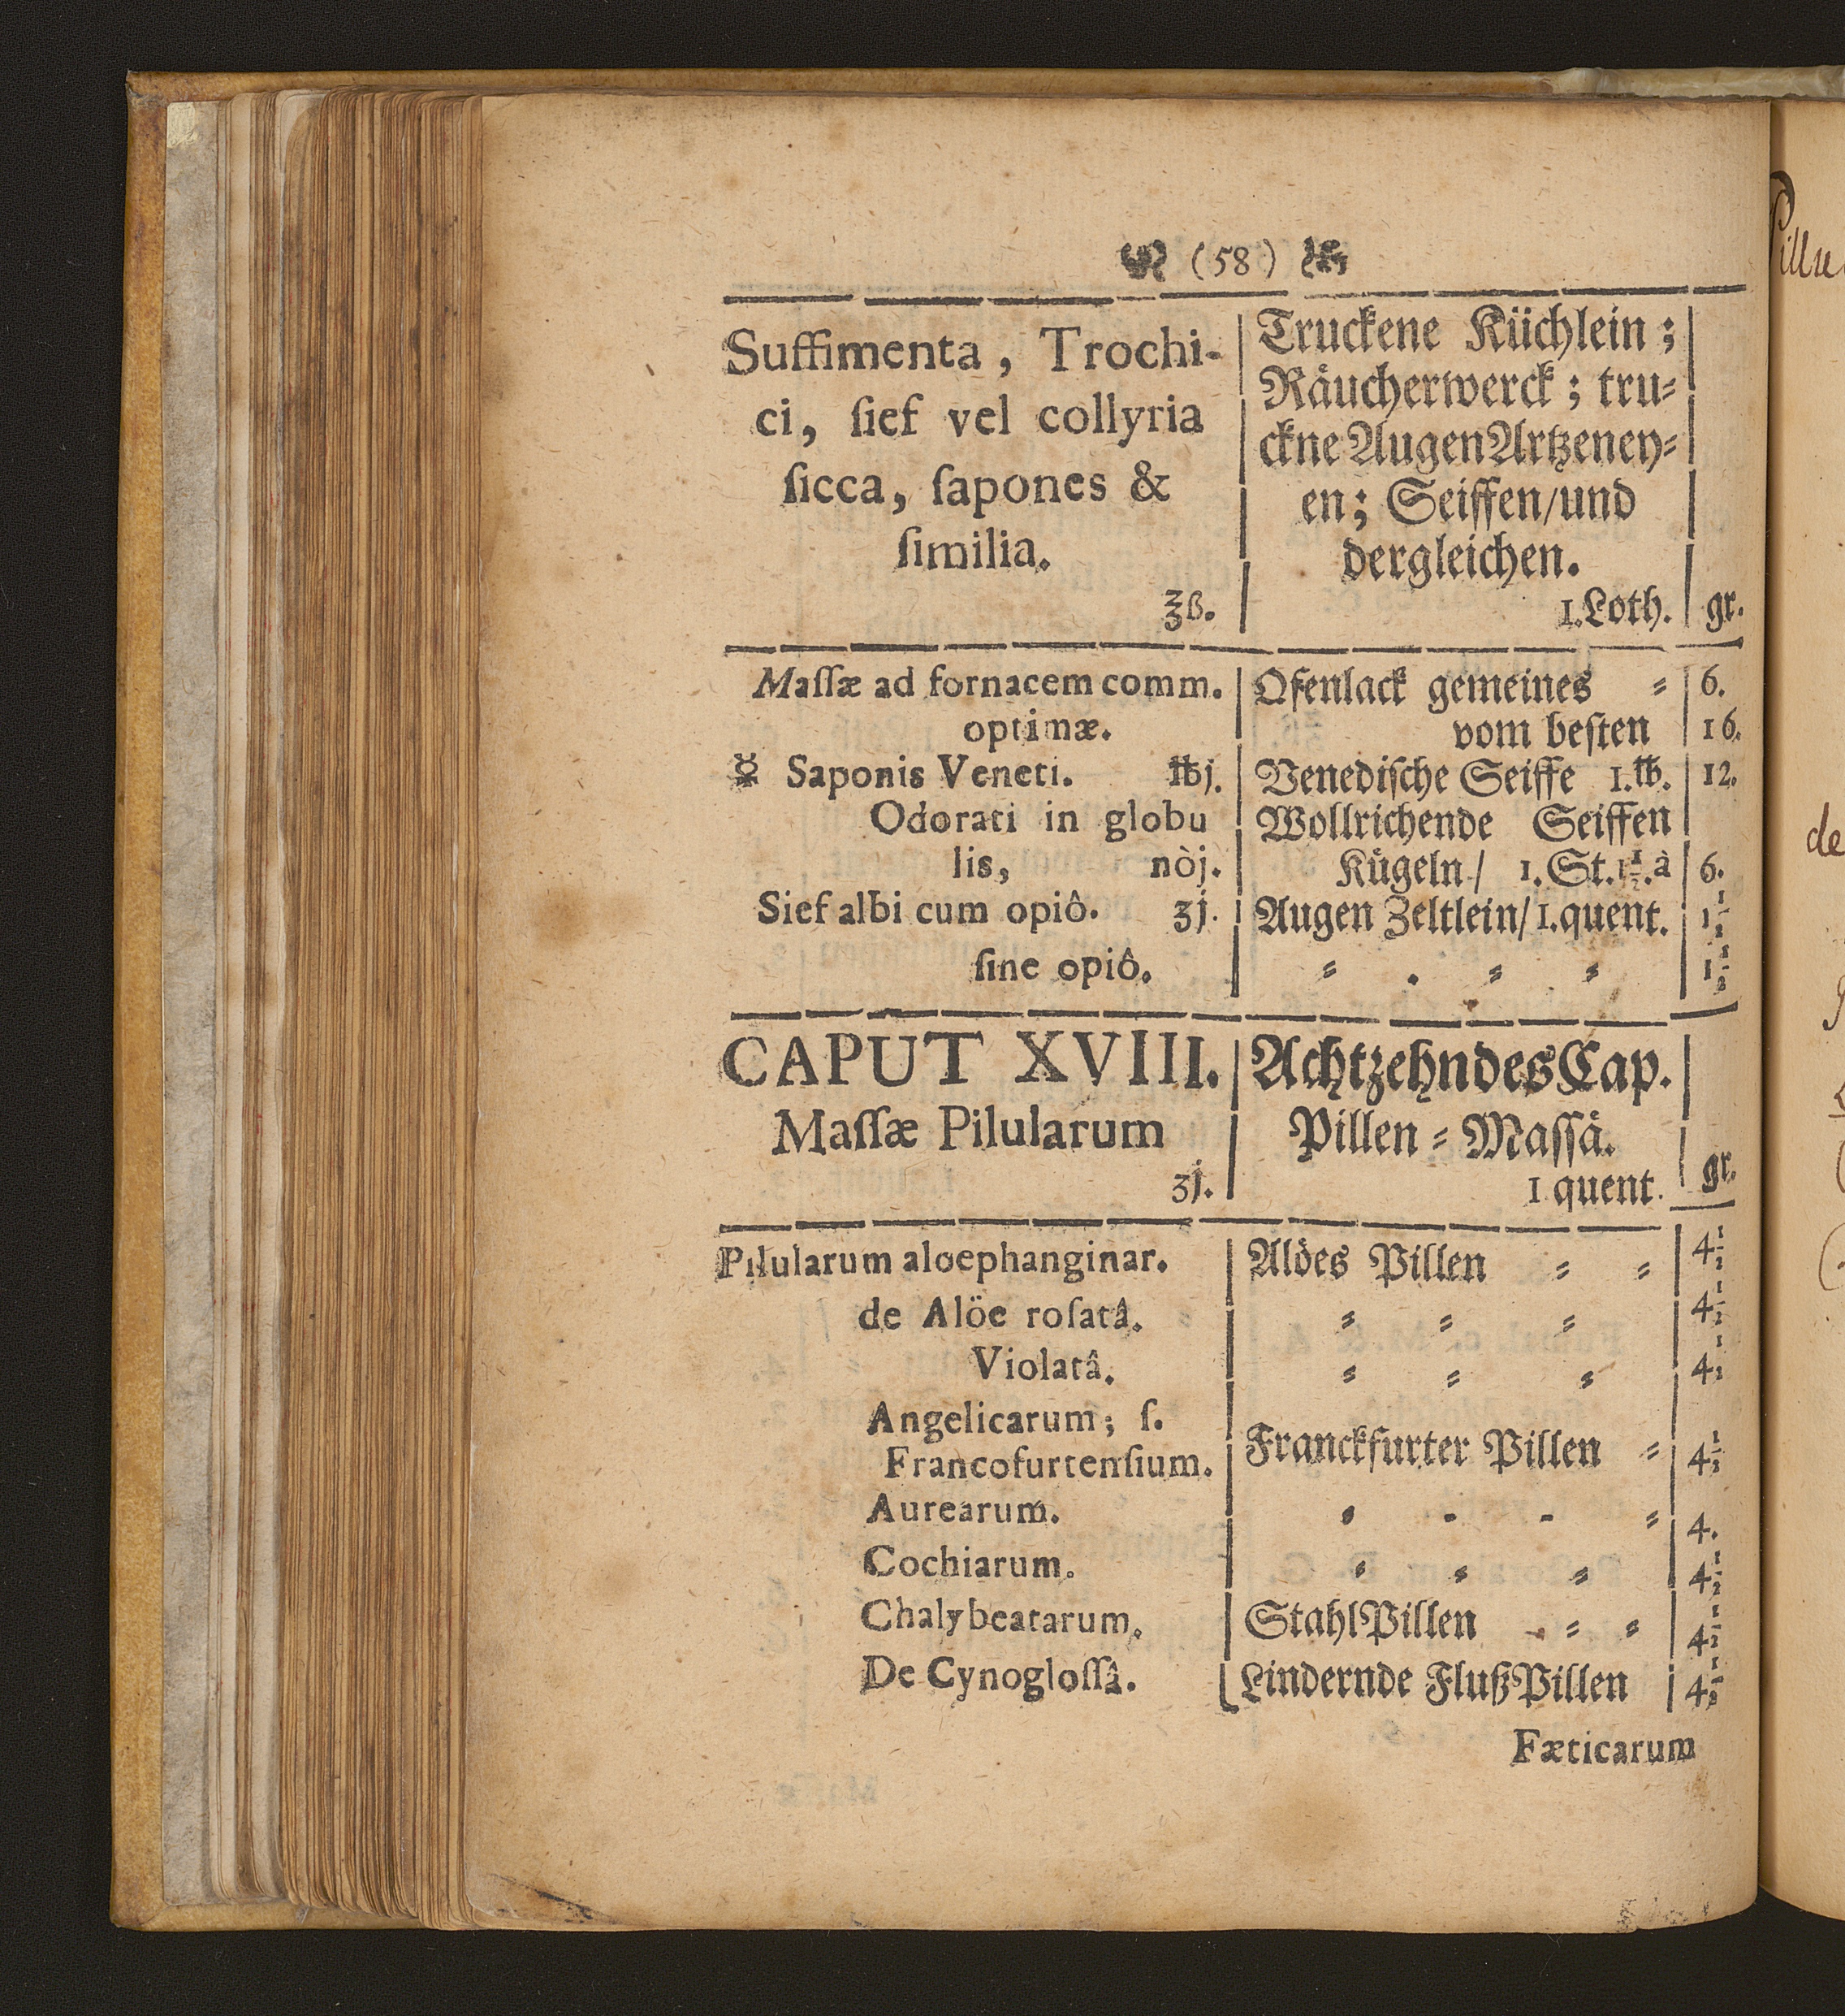 (58)
Suffimenta, Trochi- | Truckene Küchlein;
ci, ſief vel collyria | Räucherwerck; tru-
ſicca, ſapones & | ckne AugenArtzeney-
ſimilia. | en; Seiffen/und
dergleichen.
℥ß. | 1.Loth. | gr.
Maſſæ ad fornacem comm. | Ofenlack gemeines - | 6.
optimæ. | vom beſten | 16.
☿ Saponis Veneti. ℔j. | Venediſche Seiffe 1.℔. | 12.
Odorati in globu | Wollrichende Seiffen
lis, nòj. | Kügeln/ 1.St.1½.à | 6.
Sief albi cum opiô. ʒj. | Augen Zeltlein/1.quent. | 1½
ſine opiô. | - . - - | 1½
CAPUT XVIII. | AchtzehndesCap.
Maſſæ Pilularum | Pillen-Maſſä.
ʒj. | 1 quent. | gr.
Pilularum aloephanginar. | Alöes Pillen - - | 4½
de Alöe roſatâ. | - - - | 4½
Violatâ. | - - - | 4½
Angelicarum; ſ.
Francofurtenſium. | Franckfurter Pillen - | 4½
Aurearum. | - - - - | 4.
Cochiarum. | - - - | 4½
Chalybeatarum. | StahlPillen - - - | 4½
De Cynogloſſâ. | Lindernde FlußPillen | 4½
Fæticarum
illu
de